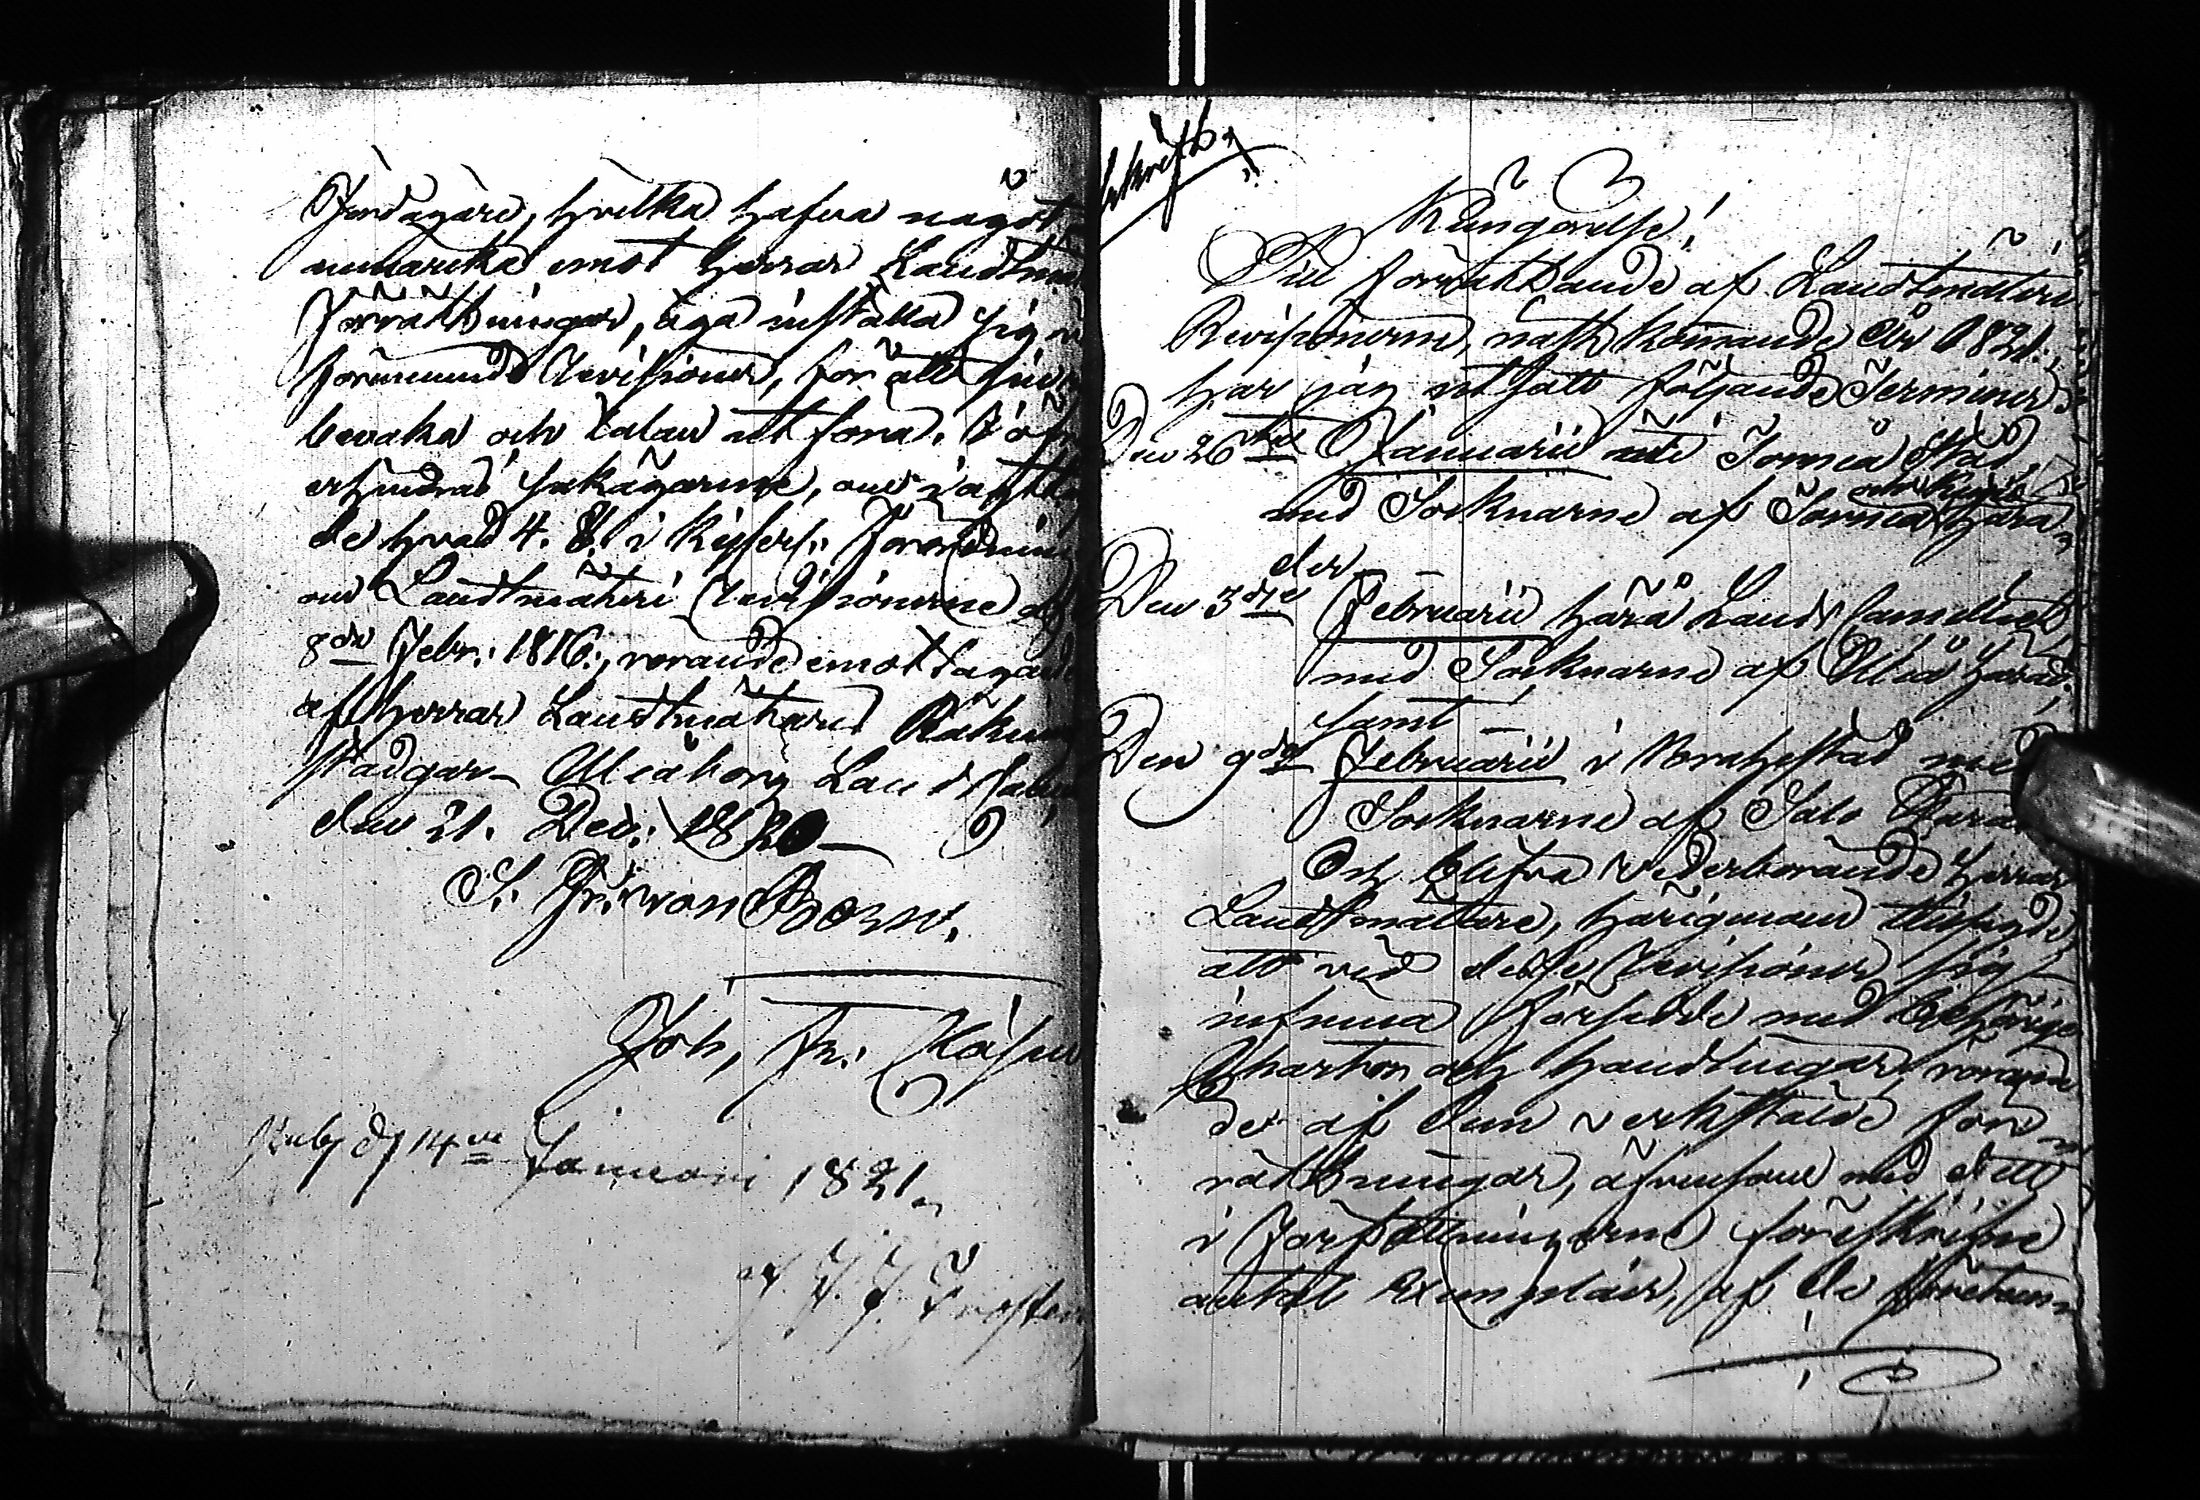 Jordägare, hvilka hafva något
anmärka emot Herrar Landtmä
Förrättningar, äga inställa sig v
förnämnde Revisioner, för att sin
bevaka och talan utföra. I öfr
erhindras sakägarne, om iagtta
de hvad 4. §. i Kejserl. Förordnin
om Landtmäteri Revisionerne af
8de Febr: 1816, rörande emottagand
af Herrar Landtmätares Räkn
stadgar. Uleåborg Lands Cancel
den 21. Dec: 1820
S. Fr: von Born.
Joh, Fr:
d 14de Januari 1821.
skrift.
Kungörelse!
Till företagande af Landtmäteri
Revisionerne, näst kommande År 1821,
har jag utsatt följande Terminer:
Den 26te Januarii uti Torneå Stad,
med Socknarne af Torneå Hära
och Kemi
der
Den 3dje Februarii härå Lands Canselliet,
med Socknarne af Uleå Härad,
samt
Den 9de Februarii i Brahestad med
Socknarne af Salo Härad
Och blifva vederbörande Herrar
Landtmätare, härigenom tillsagde,
att vid desse Revisioner sig
infinna försedde med behörige
Chartor och Handlingar röran
de af dem verkstälde för
rättningar, äfvensom med det
i Författningarne föreskrifne
antal Exemplar, af de